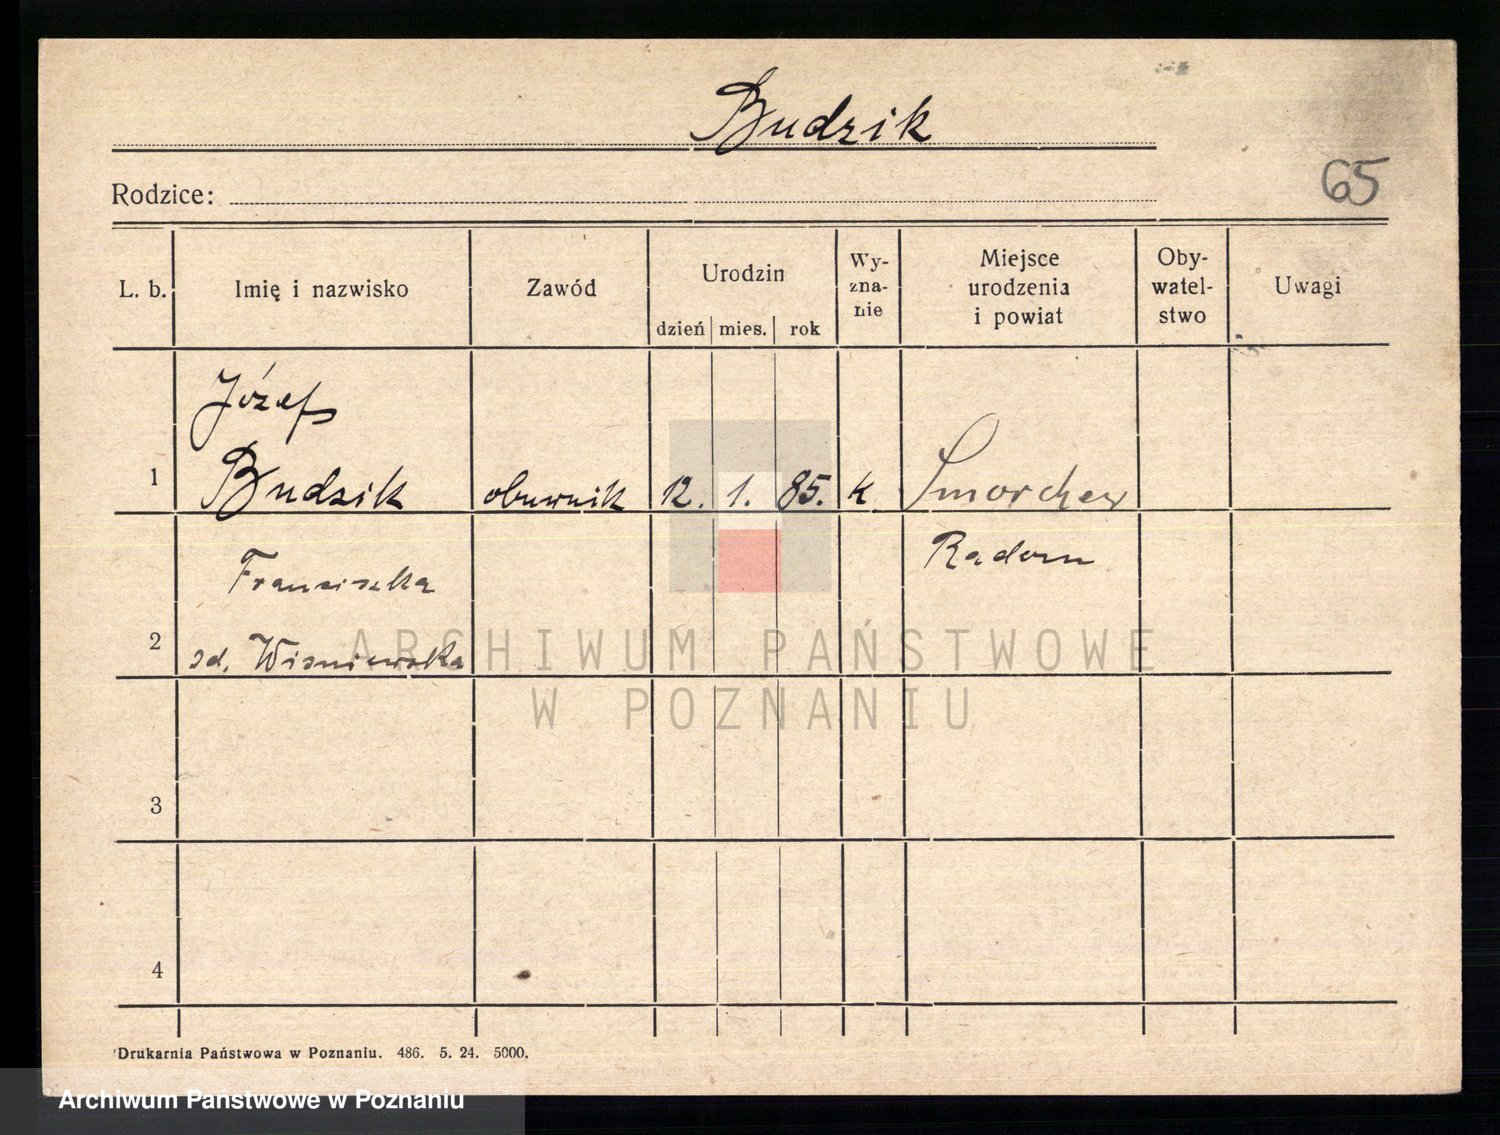 Budzik
65
Rodzice:
L. b. Imię i nazwisko Zawód Urodzin dzień mies. rok Wy-zna-nie Miejsce urodzenia i powiat Oby-watel-stwo Uwagi
Józef
1 Budzik obuwnik 12. 1. 85. k
Radom
Franciszka
2 zd. Wiśniewska
3
4
Drukarnia Państwowa w Poznaniu. 486. 5. 24. 5000.
ARCHIWUM PAŃSTWOWE
W POZNANIU
Archiwum Państwowe w Poznaniu